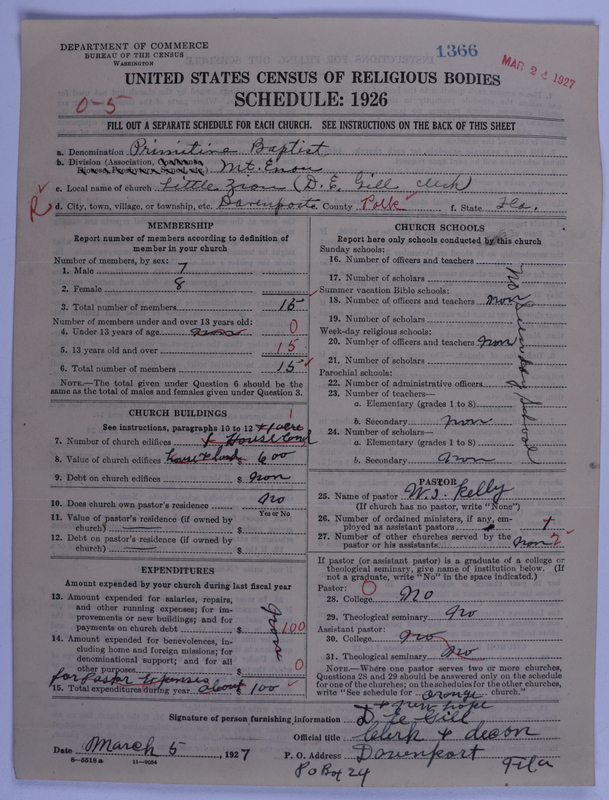 DEPARTMENT OF COMMERCE
BUREAU OF THE CENSUS
WASHINGTON
1366
MAR 24 1927
UNITED STATES CENSUS OF RELIGIOUS BODIES
SCHEDULE: 1926
0-5
FILL OUT A SEPARATE SCHEDULE FOR EACH CHURCH. SEE INSTRUCTIONS ON THE BACK OF THIS SHEET
a. Denomination Primitive Baptist
b. Division (Association, Conference, Diocese, Presbytery, Synod, etc.) Mt. Enon
c. Local name of church Little Zion (D. E. Gill clerk)
R
d. City, town, village, or township, etc. Davenport e. County Polk f. State Fla.
MEMBERSHIP
Report number of members according to definition of member in your church
Number of members, by sex:
1. Male 7
2. Female 8
3. Total number of members 15
Number of members under and over 13 years old:
4. Under 13 years of age non 0
5. 13 years old and over 15
6. Total number of members 15
NOTE.—The total given under Question 6 should be the same as the total of males and females given under Question 3.
CHURCH BUILDINGS
See instructions, paragraphs 10 to 12
7. Number of church edifices 1 House land
8. Value of church edifices house & land $ 600
9. Debt on church edifices $ non
10. Does church own pastor's residence no
Yes or No
11. Value of pastor's residence (if owned by church) $
12. Debt on pastor's residence (if owned by church) $
EXPENDITURES
Amount expended by your church during last fiscal year
13. Amount expended for salaries, repairs, and other running expenses; for improvements or new buildings; and for payments on church debt $ 100
non
14. Amount expended for benevolences, including home and foreign missions; for denominational support; and for all other purposes $ 0
for Pastor expenses
15. Total expenditures during year about 100
CHURCH SCHOOLS
Report here only schools conducted by this church
Sunday schools:
16. Number of officers and teachers
17. Number of scholars
Summer vacation Bible schools:
18. Number of officers and teachers non
19. Number of scholars
Week-day religious schools:
20. Number of officers and teachers non
21. Number of scholars
Parochial schools:
22. Number of administrative officers
23. Number of teachers—
a. Elementary (grades 1 to 8)
b. Secondary non
24. Number of scholars—
a. Elementary (grades 1 to 8)
b. Secondary non
No Sunday School
PASTOR
25. Name of pastor W. J. Kelly
(If church has no pastor, write "None")
26. Number of ordained ministers, if any, employed as assistant pastors
27. Number of other churches served by the pastor or his assistants non 2
If pastor (or assistant pastor) is a graduate of a college or theological seminary, give name of institution below. (If not a graduate, write "No" in the space indicated.)
Pastor: 0
28. College No
29. Theological seminary No
Assistant pastor:
30. College No
31. Theological seminary No
NOTE.—Where one pastor serves two or more churches, Questions 28 and 29 should be answered only on the schedule for one of the churches; on the schedules for the other churches, write "See schedule for orange church."
& new hope
Signature of person furnishing information D. E. Gill
Official title Clerk & decon
Date March 5, 1927
P. O. Address Davenport Fla
8—5518 a 11—9084
PO Box 24